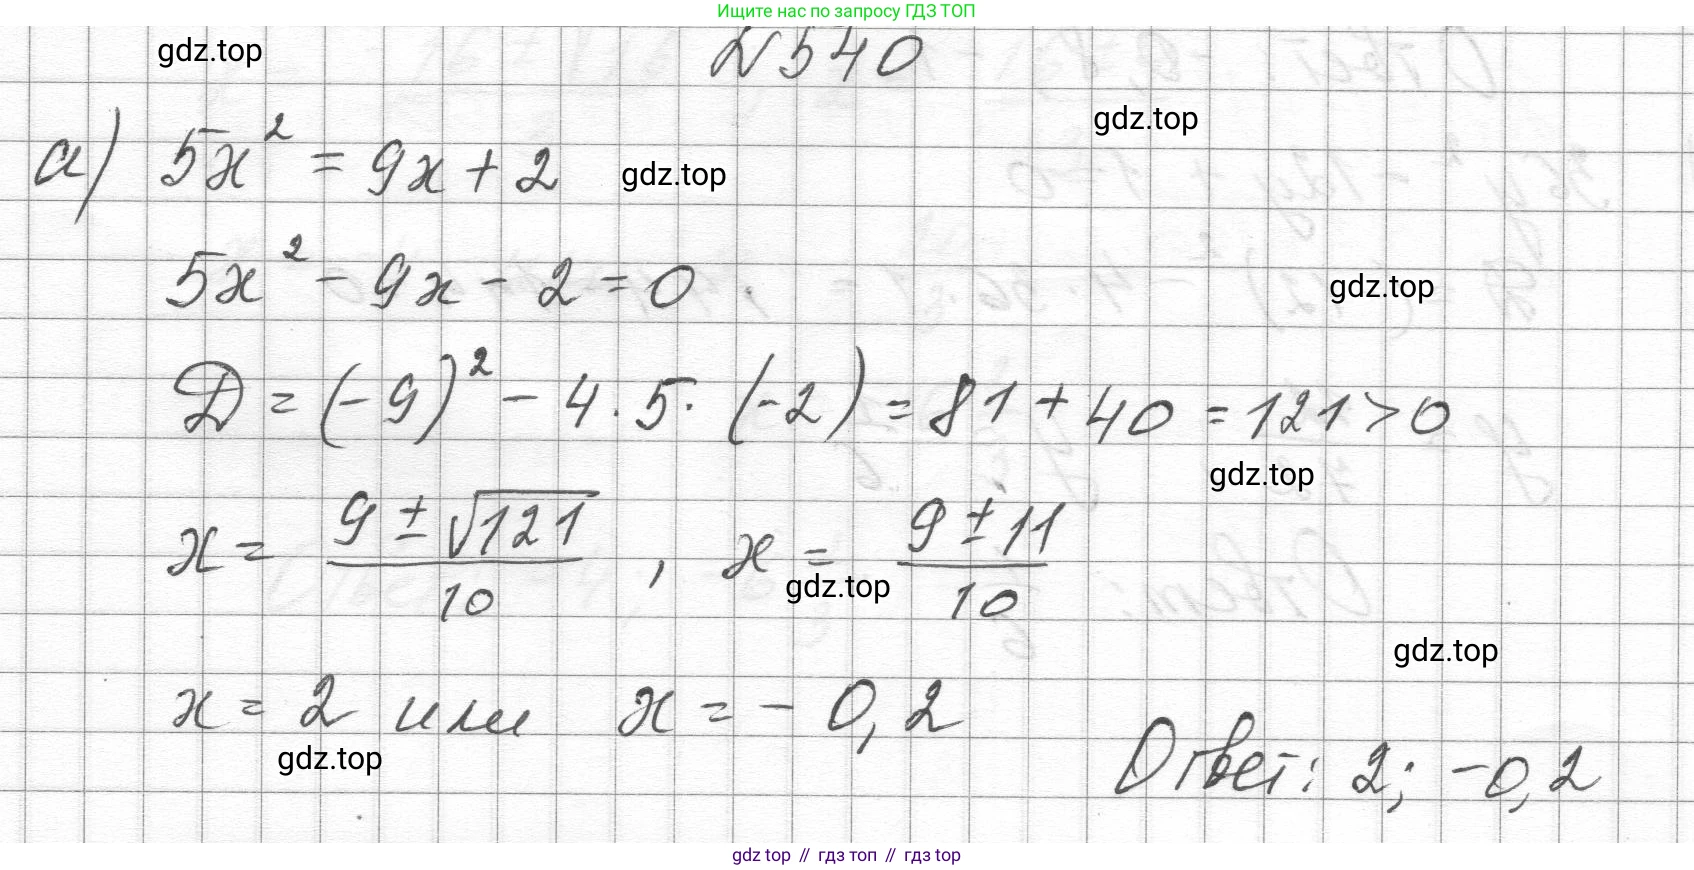 Ищите нас по запросу ГДЗ ТОП
№540
gdz.top
gdz.top
а) 5x² = 9x + 2
gdz.top
5x² - 9x - 2 = 0
gdz.top
D = (-9)² - 4 · 5 · (-2) = 81 + 40 = 121 > 0
gdz.top
x = (9 ± √121)/10 , x = (9 ± 11)/10
gdz.top
gdz.top
x = 2 или x = - 0,2
gdz.top
Ответ: 2; -0,2
gdz top // гдз топ // gdz top